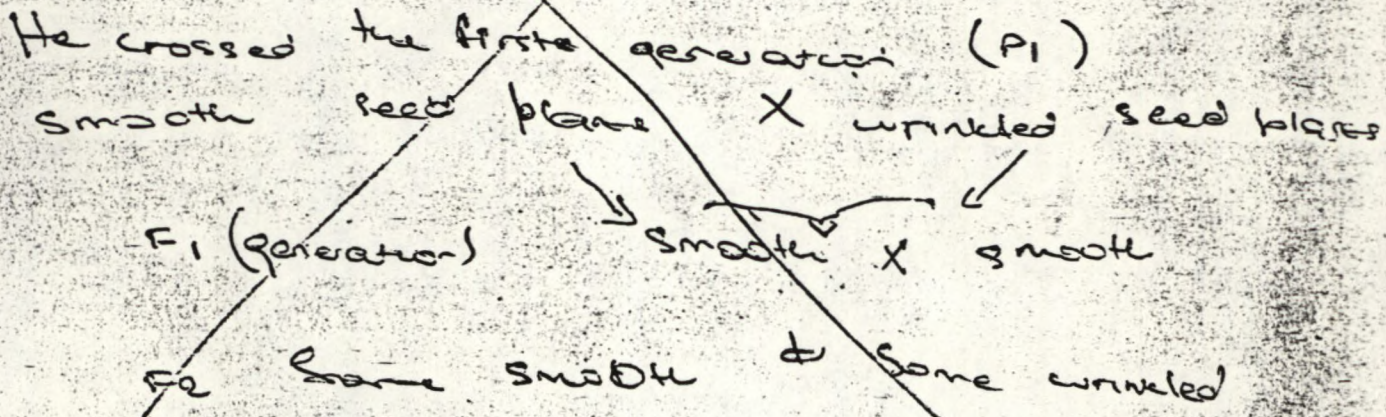 He crossed the firste generation (P1)
smooth seed plane X wrinkled seed planes
F1 (generation) smooth X smooth
F2 Some smooth & Some wrinkled